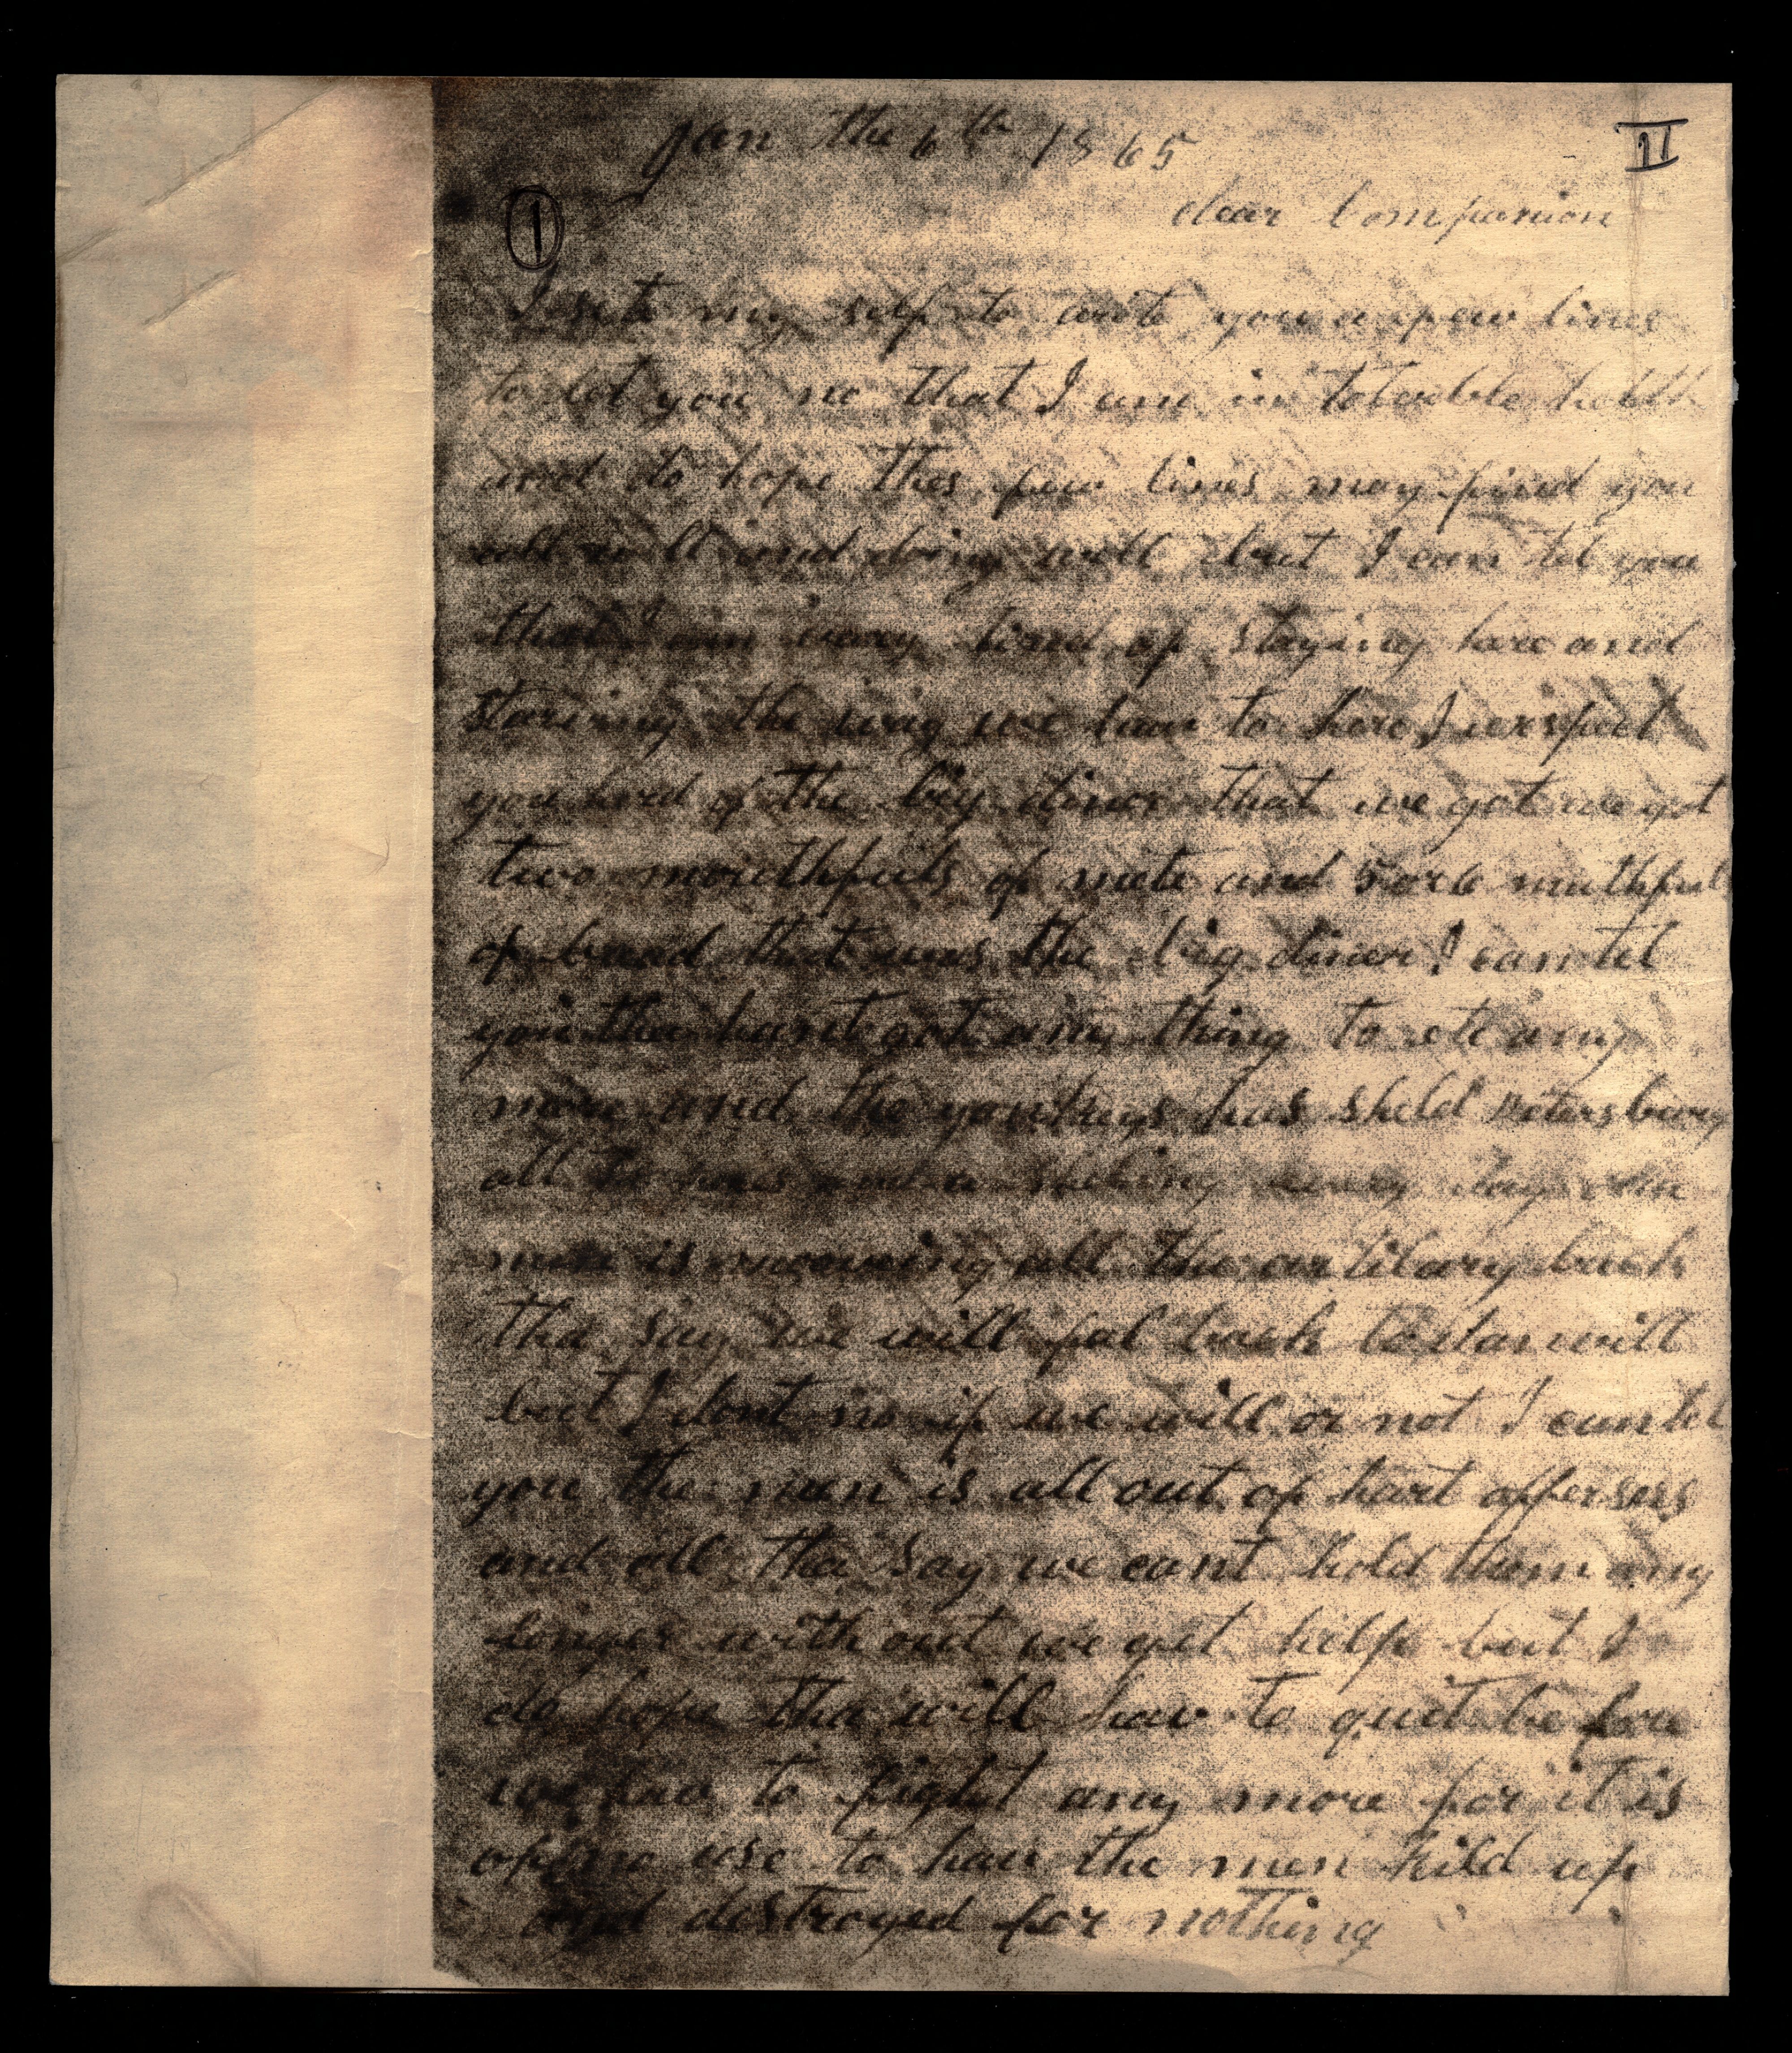 Jan the 6th 1865
II
dear Companion
1
I sete my self to write you a few lines
to let you no that I am in tolerble helth
and do hope thes few lines may find you
all well and doing well but I can tel you
that I am very tired of staying here and
starving the way we hav to here I exspect
you herd of the big diner that we got we got
two mouthfuls of mete and 5 or 6 muthfuls
of bread that was the big diner I can tel
you tha hant got any thing to ete any
more and the yankeys has sheld petersburg
all to and a every day
men is moveing all the artilary back
tha say we will fal back to will
but I dont no if we will or not I can tel
you the men is all out of hart offersers
and all tha say we cant hold them any
longer with out we get help but I
do hope tha will hav to quit before
we hav to fight any more for it is
of no use to hav the men kild up
and destroyed for nothing